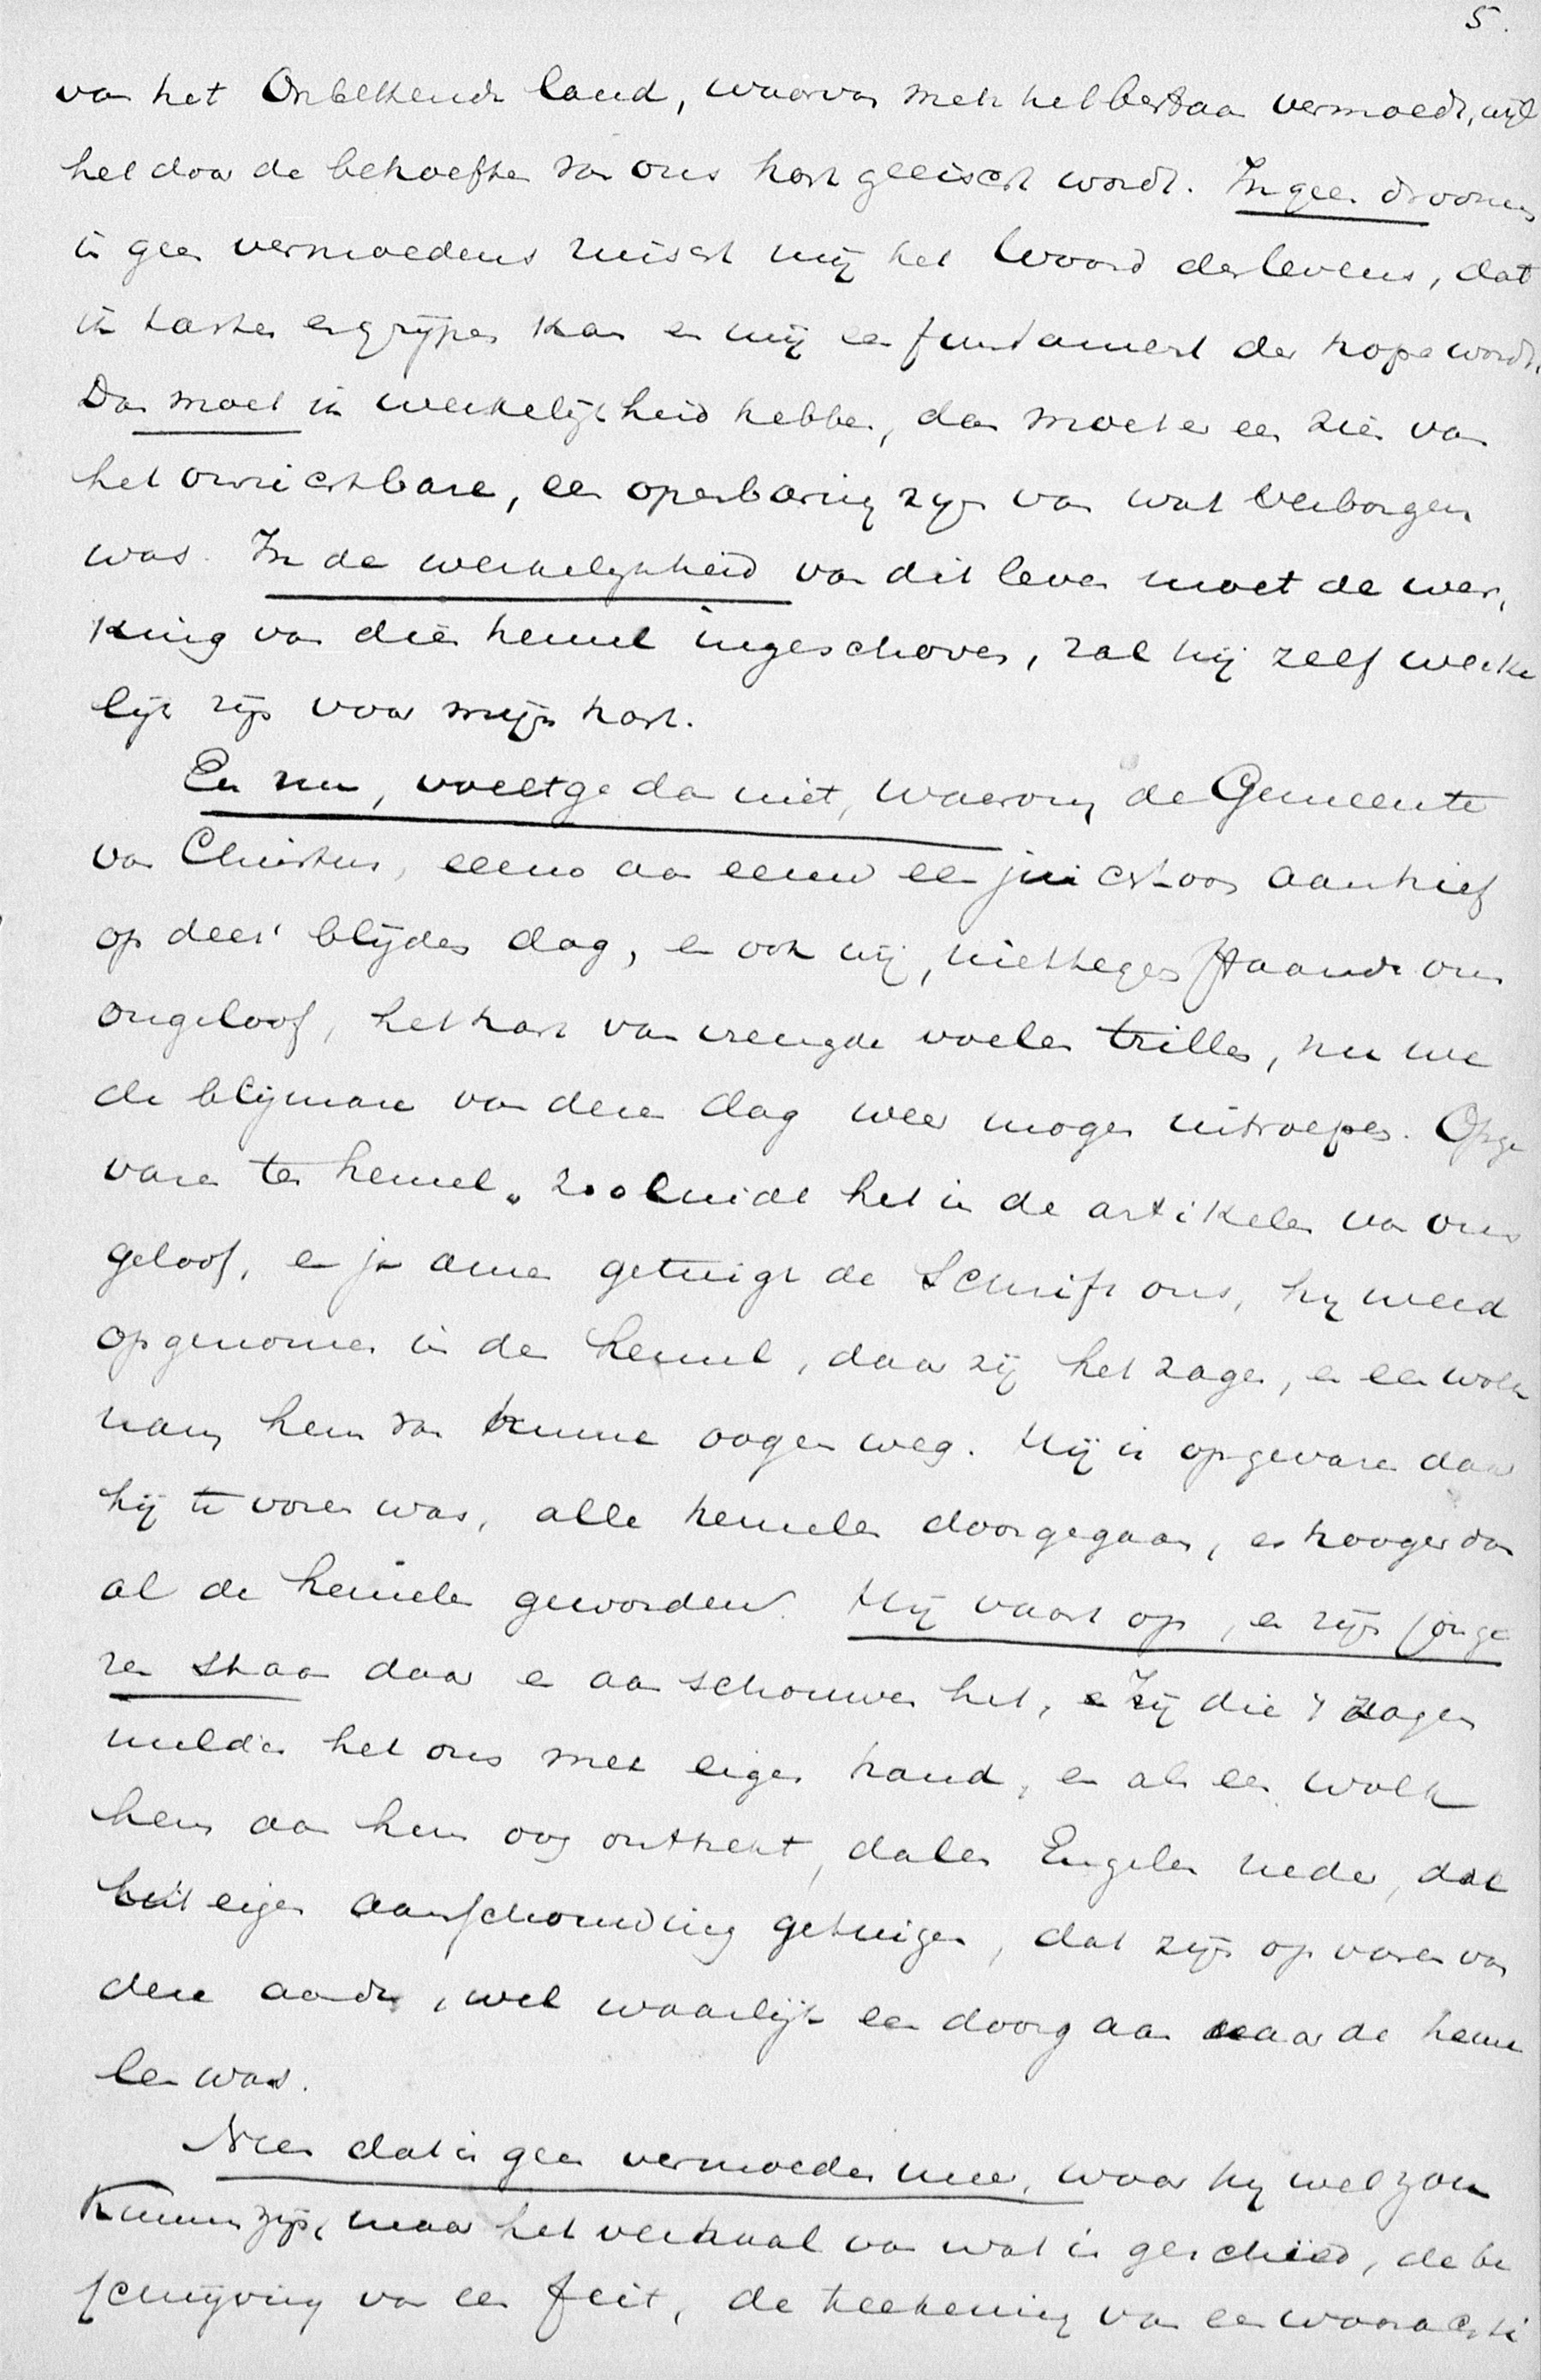 5.
van het Onbekende land, waarvan men het bestaan vermoedt, wijl
het door de behoefte van ons hart geëischt wordt. In geen droomen
in geen vermoedens ruischt mij het Woord des levens, dat
ik tasten en grijpen kan en mij een fundament der hope wordt.
Dan moet ik werkelijkheid hebben, dan moet er een zien van
het onzichtbare, een openbaring zijn van wat verborgen
was. In de werkelijkheid van dit leven moet de wer,
king van dien hemel ingeschoven, zal hij zelf werke
lijk zijn voor mijn hart.
En nu, voelt ge dan niet, waarom de Gemeente
van Christus, eeuw aan eeuw een juichtoon aanhief
op deez' blijden dag, en ook wij, niettegenstaande ons
ongeloof, het hart van vreugde voelen trillen, nu we
de blijmare van dezen dag weer mogen uitroepen. Opge
varen ten hemel" zoo luidt het in de artikelen van ons
geloof, en ja amen getuigt de Schrift ons, hij werd
opgenomen in den hemel, daar zij het zagen, en een wolk
nam hem van hunne oogen weg. Hij is opgevaren daar
hij te voren was, alle hemelen doorgegaan, en hooger dan
al de hemelen geworden. Hij vaart op, en zijn jonge
ren staan daar en aanschouwen het, Zij die 't zagen
melden het ons met eigen hand, en als een wolk
hem aan hun oog onttrekt, dalen Engelen neder, dat
uit eigen aanschouwing getuigen, dat zijn opvaren van
deze aarde, wel waarlijk een doorgaan naar de heme
len was.
Neen dat is geen vermoeden meer, waar hij wel zou
kunnen zijn, maar het verhaal van wat is geschied, de be
schrijving van een feit, de teekening van een waarachti